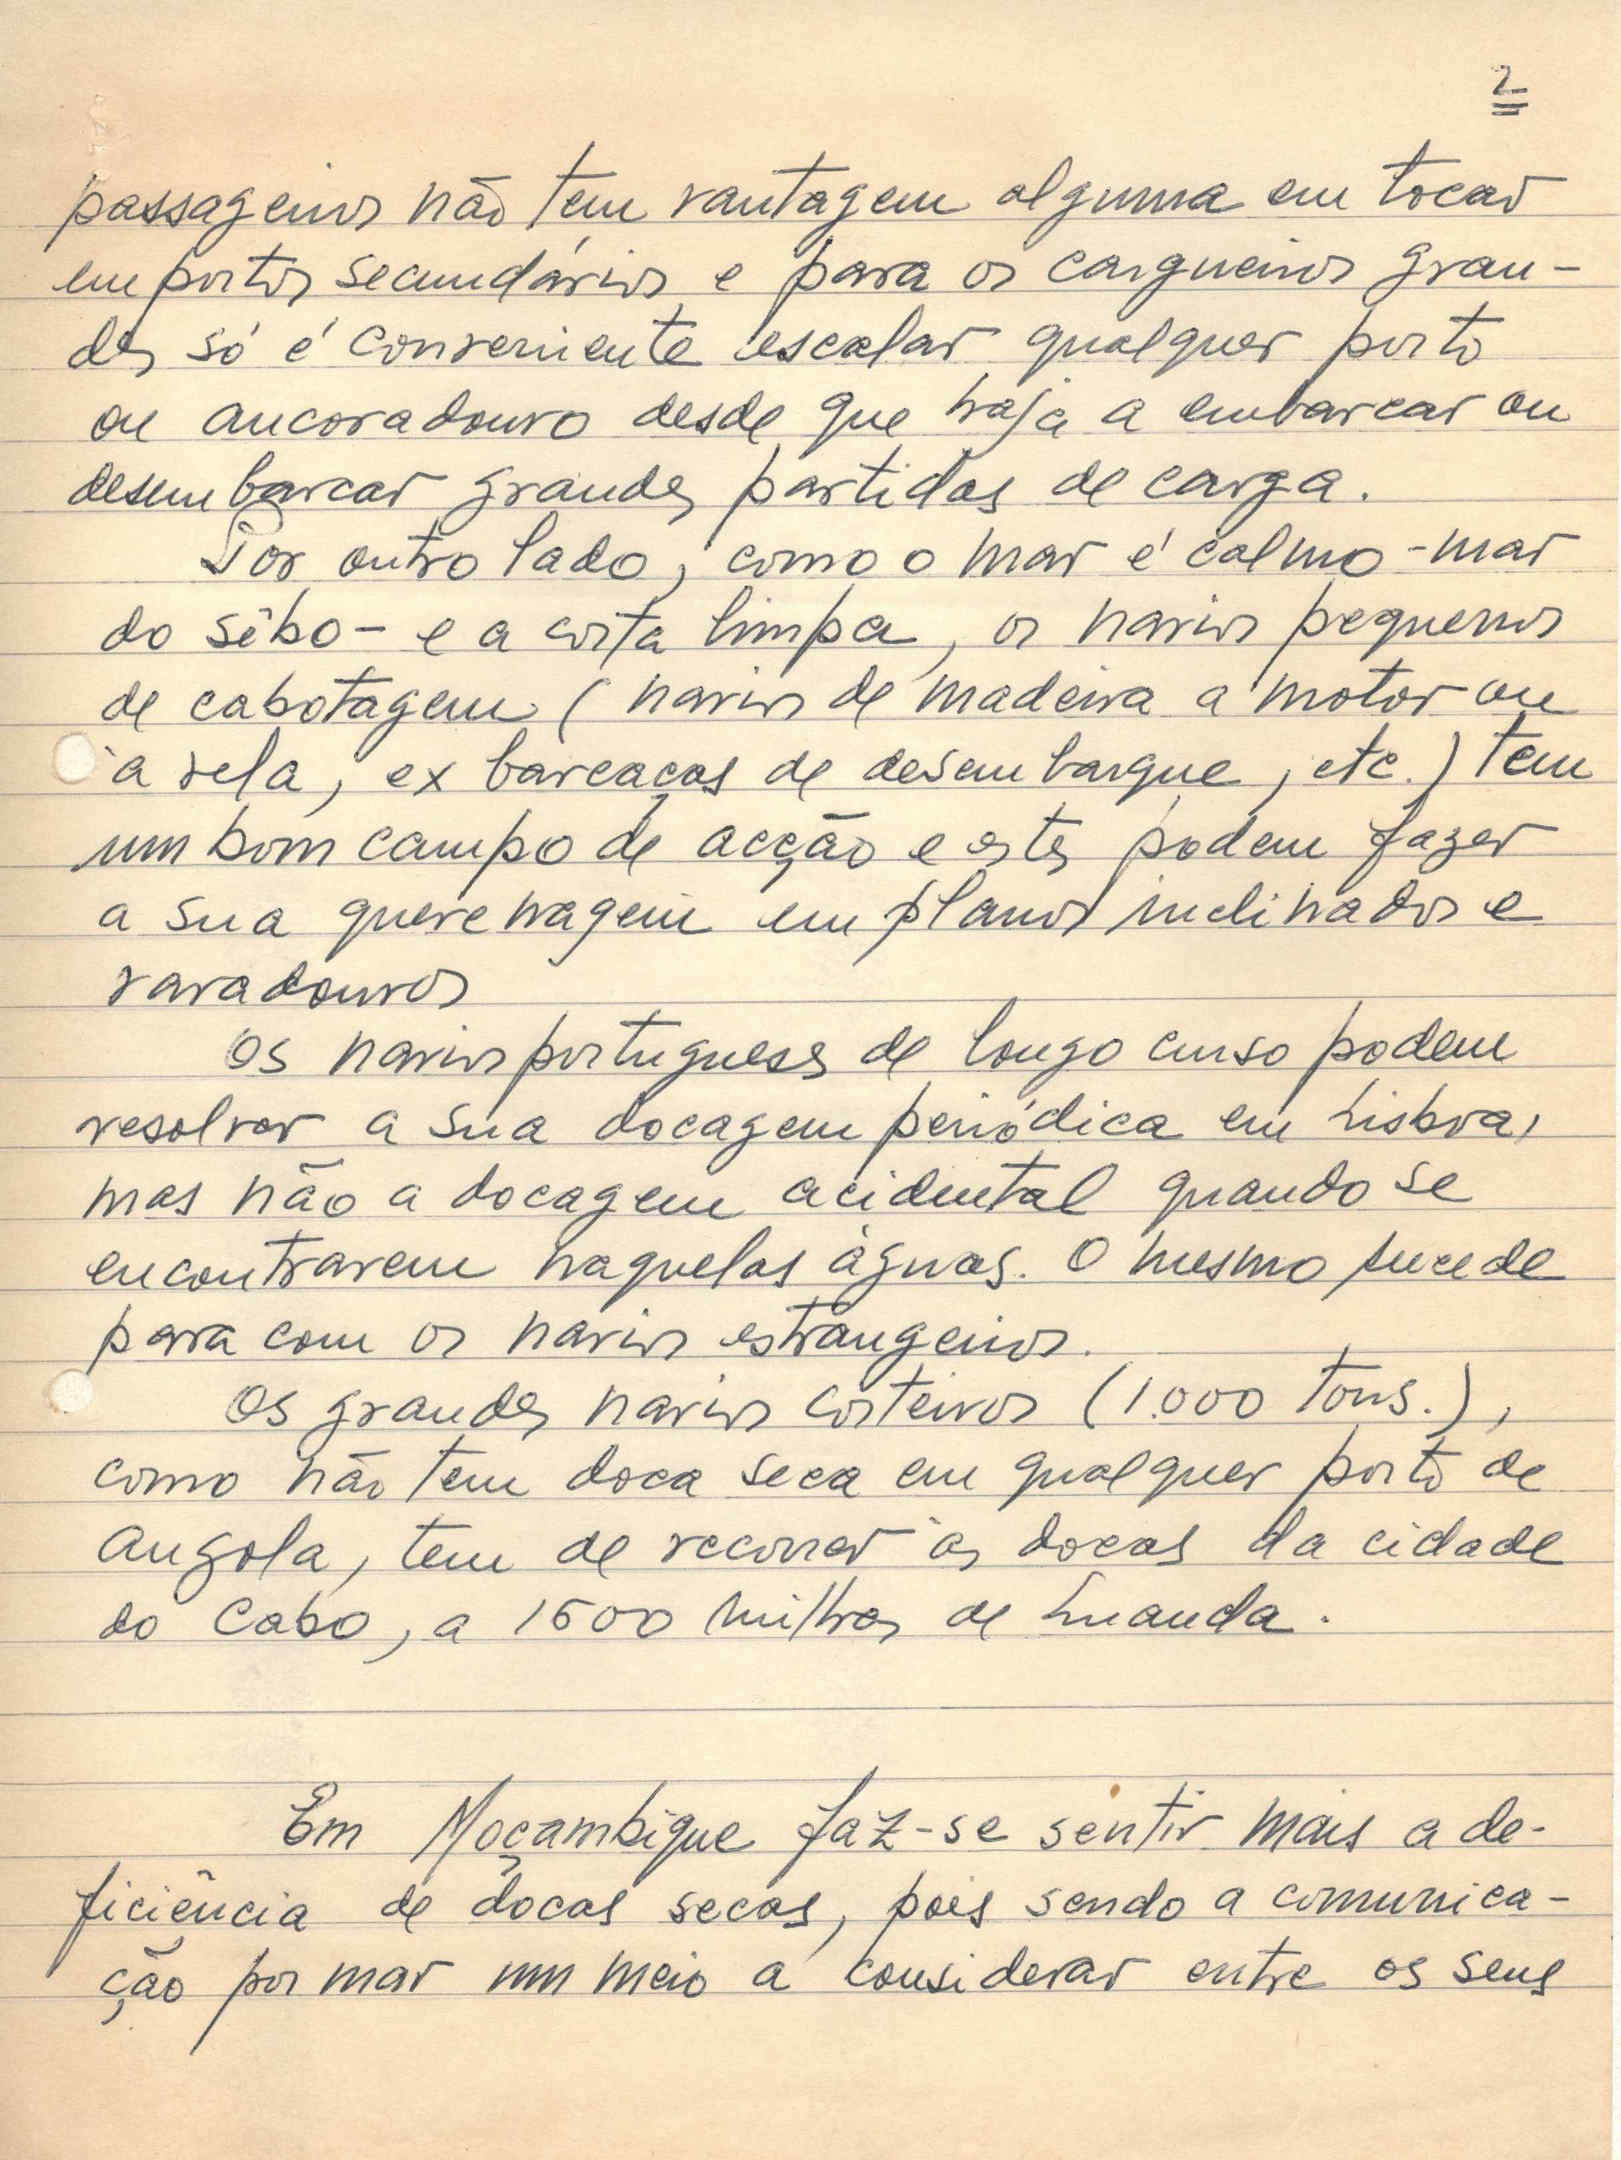 2
passageiros não tem vantagem alguma em tocar
em portos secundários e para os cargueiros gran-
des só é conveniente escalar qualquer porto
ou ancoradouro desde que haja a embarcar ou
desembarcar grandes partidas de carga.
Por outro lado, como o mar é calmo - mar
do sêbo - e a costa limpa, os navios pequenos
de cabotagem (navios de madeira a motor ou
à vela, ex barcaças de desembarque, etc.) tem
um bom campo de acção e estes podem fazer
a sua querenagem em planos inclinados e
varadouros
Os navios portugueses de longo curso podem
resolver a sua docagem periódica em Lisboa,
mas não a docagem acidental quando se
encontrarem naquelas àguas. O mesmo sucede
para com os navios estrangeiros.
Os grandes navios costeiros (1.000 tons.),
como não tem doca seca em qualquer porto de
Angola, tem de recorrer às docas da cidade
do Cabo, a 1500 milhas de Luanda.
Em Moçambique faz-se sentir mais a de-
ficiência de docas secas, pois sendo a comunica-
ção por mar um meio a considerar entre os seus